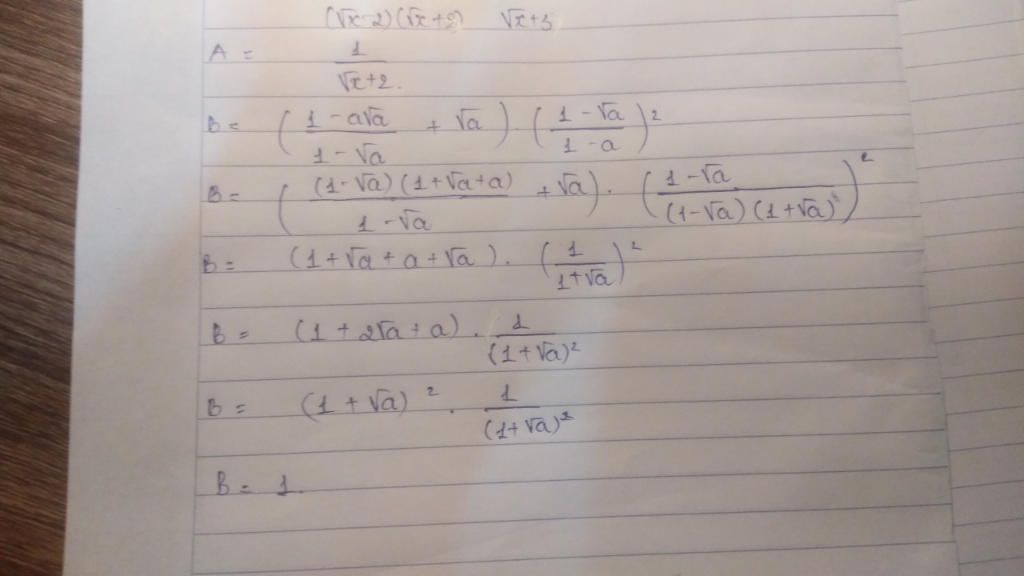 (√x-2)(√x+2) √x+3
A = 1/(√x+2).
B = ((1 - a√a)/(1 - √a) + √a) . ((1 - √a)/(1 - a))²
B = ((1-√a)(1+√a+a)/(1 - √a) + √a) . ((1 - √a)/((1-√a)(1+√a)))²
B = (1 + √a + a + √a) . (1/(1+√a))²
B = (1 + 2√a + a) . 1/(1+√a)²
B = (1 + √a)² . 1/(1+√a)²
B = 1.